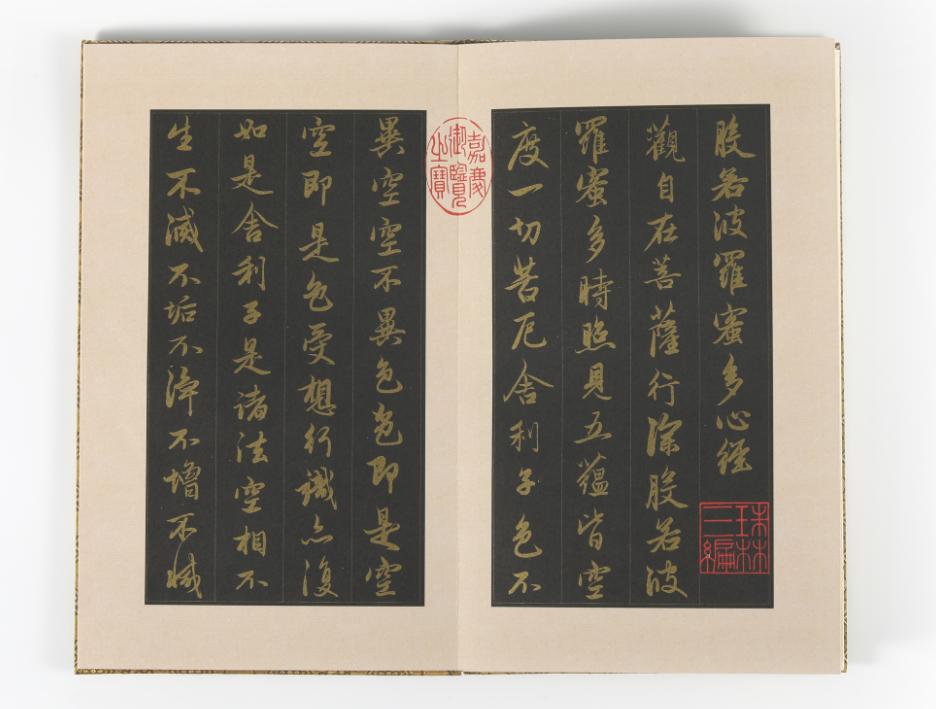 般若波羅蜜多心經
珠林三編
觀自在菩薩行深般若波
羅蜜多時照見五蘊皆空
度一切苦厄舍利子色不
嘉慶御覽之寶
異空空不異色色即是空
空即是色受想行識亦復
如是舍利子是諸法空相不
生不滅不垢不淨不增不減